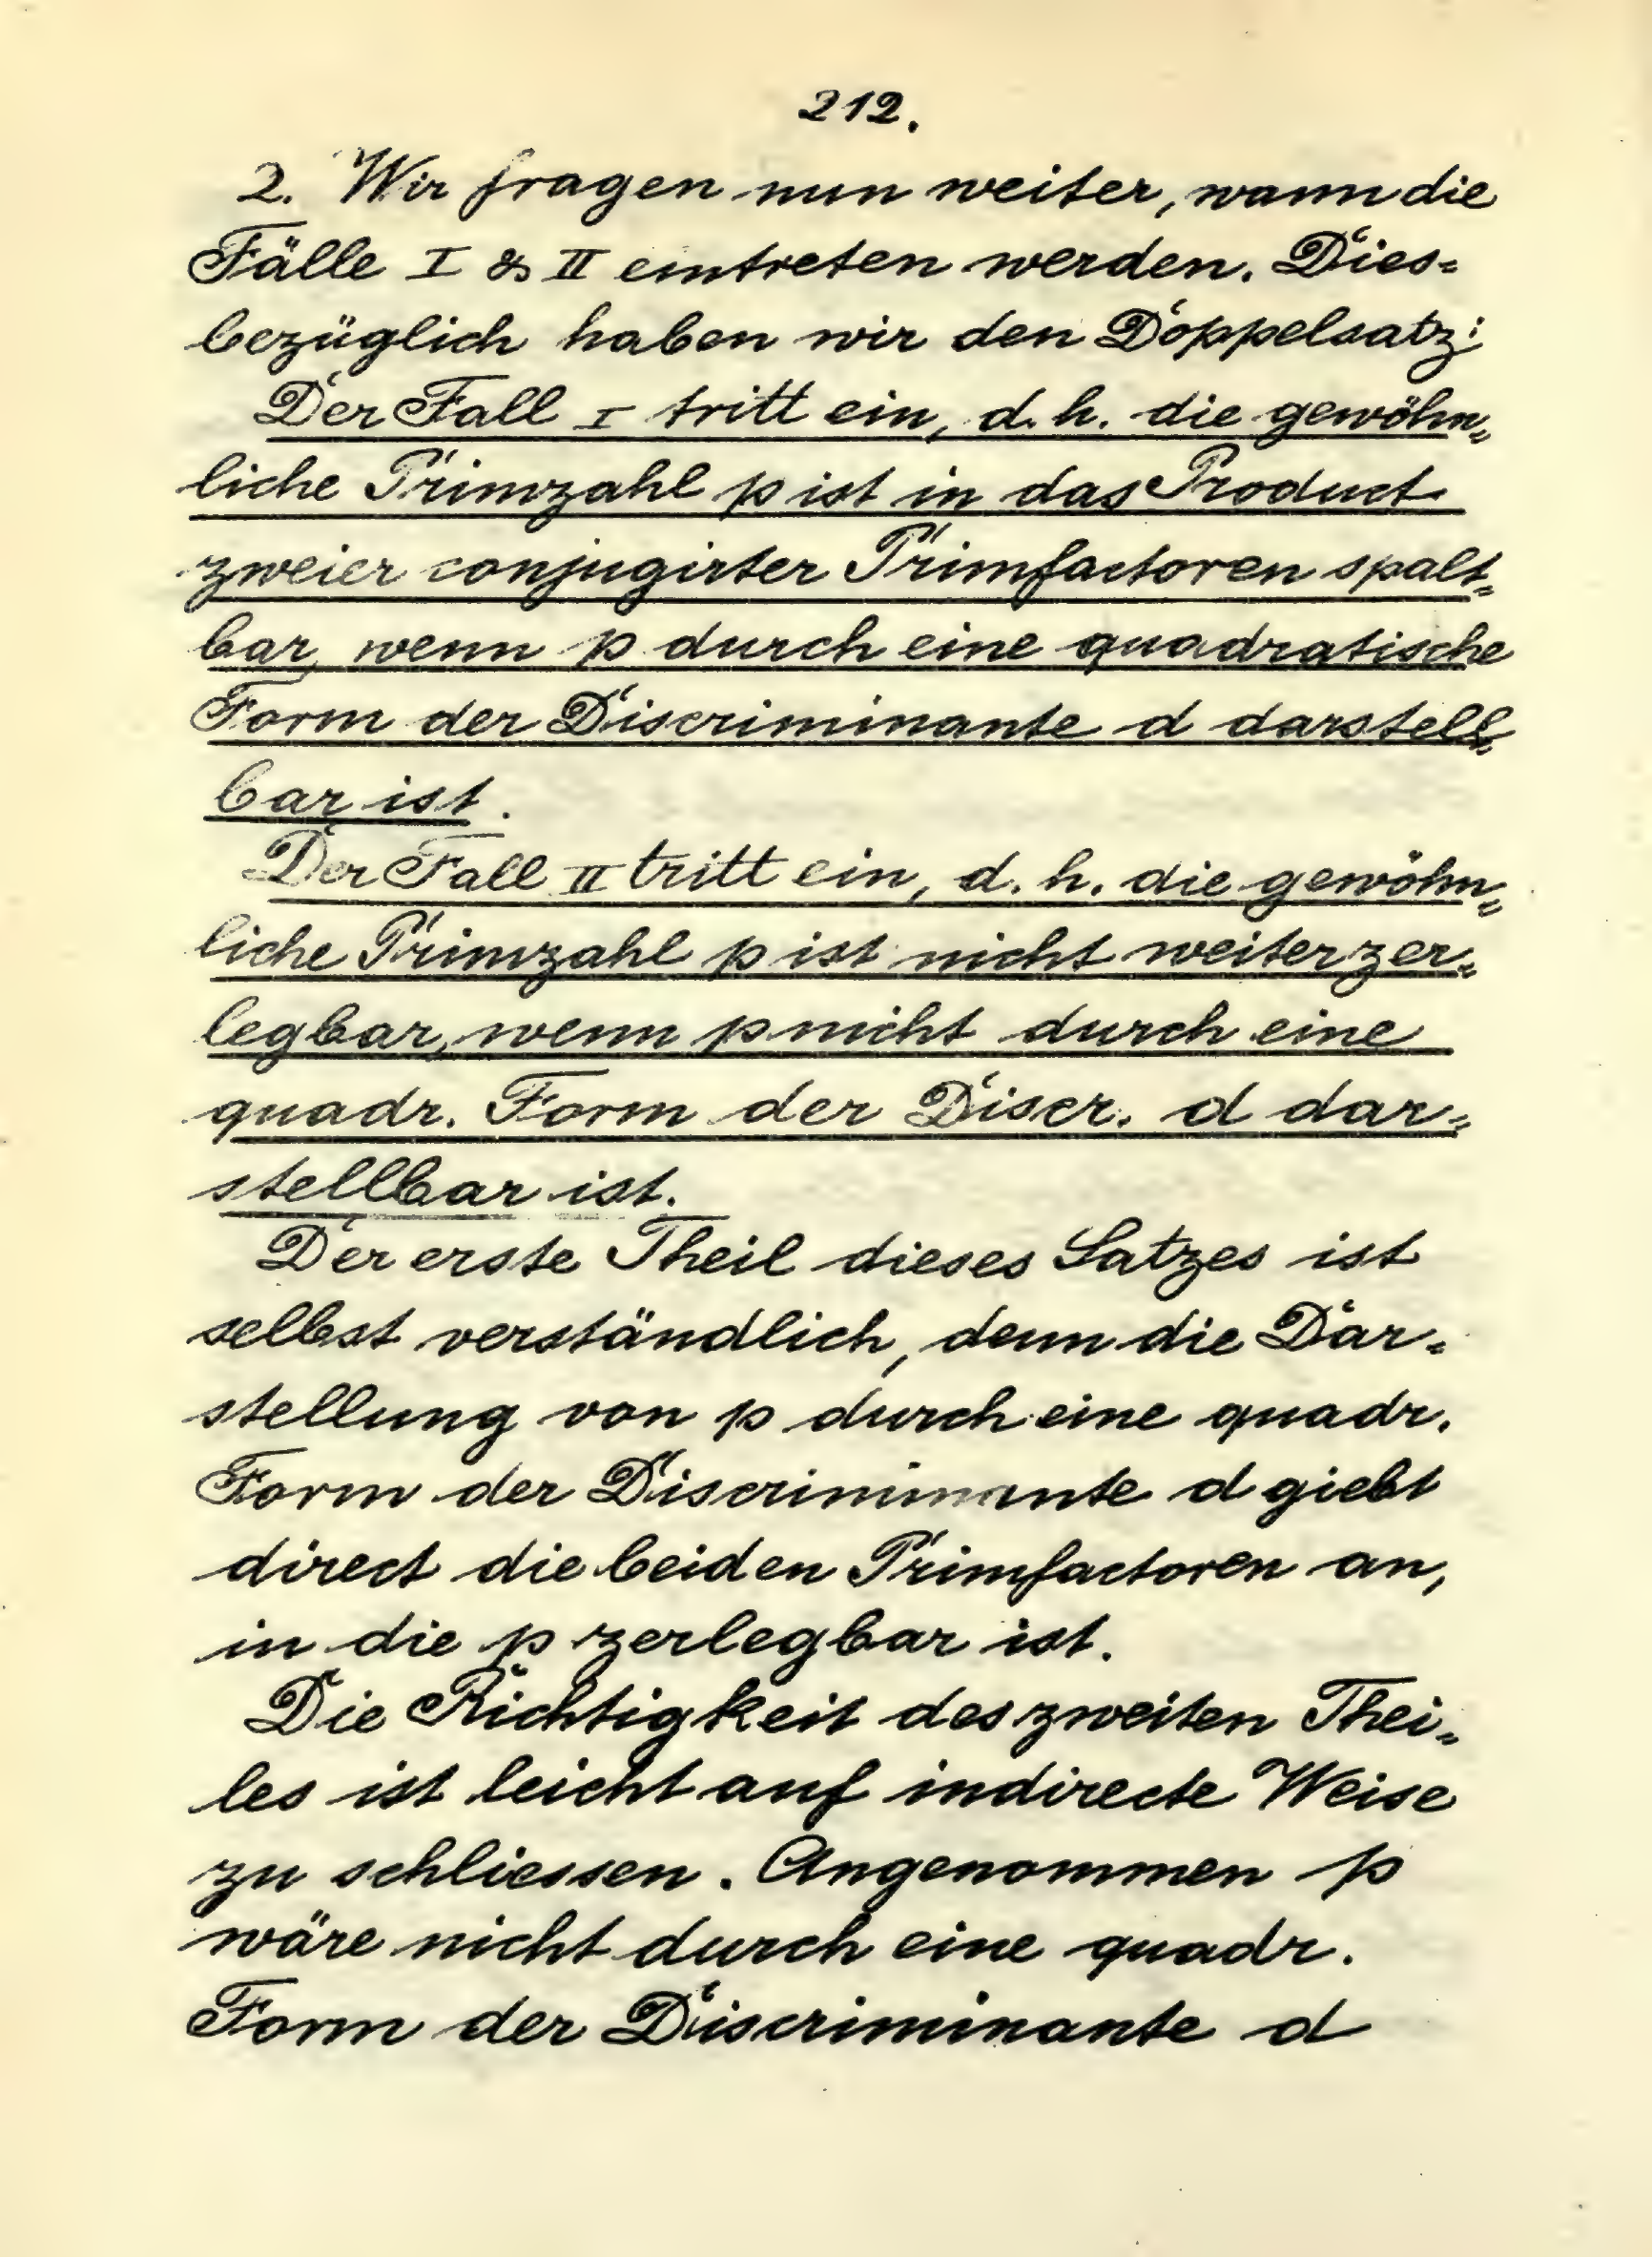 212.
2. Wir fragen nun weiter, wann die
Fälle I & II eintreten werden. Dies=
bezüglich haben wir den Doppelsatz:
Der Fall I tritt ein, d. h. die gewöhn=
liche Primzahl p ist in das Product
zweier conjugirter Primfactoren spalt=
bar, wenn p durch eine quadratische
Form der Discriminante d darstell=
bar ist.
Der Fall II tritt ein, d. h. die gewöhn=
liche Primzahl p ist nicht weiter zer=
legbar, wenn p nicht durch eine
quadr. Form der Discr. d dar=
stellbar ist.
Der erste Theil dieses Satzes ist
selbst verständlich, denn die Dar=
stellung von p durch eine quadr.
Form der Discriminante d giebt
direct die beiden Primfactoren an,
in die p zerlegbar ist.
Die Richtigkeit des zweiten Thei=
les ist leicht auf indirecte Weise
zu schliessen. Angenommen p
wäre nicht durch eine quadr.
Form der Discriminante d